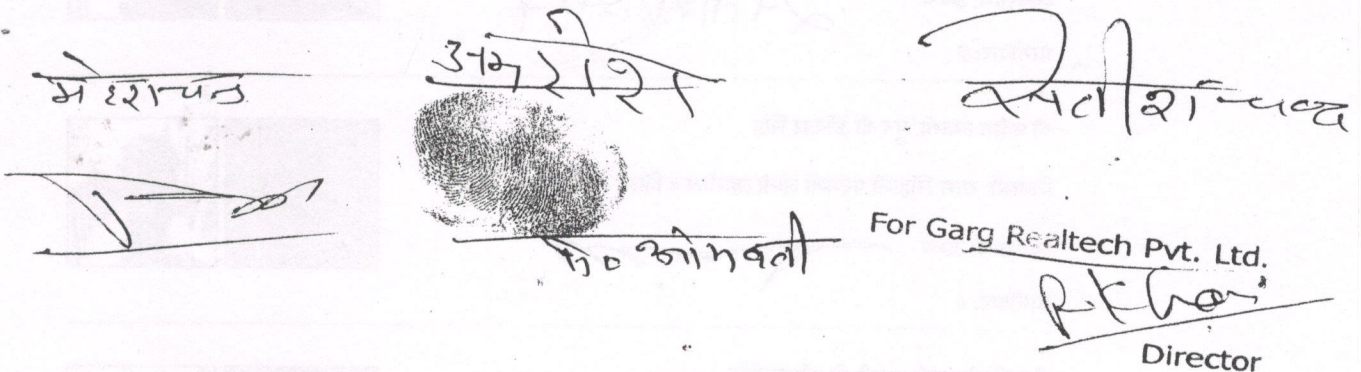 महेशचन्द
अमरोश
सतीश चन्द्र
नि० ओमवती
For Garg Realtech Pvt. Ltd.
Director